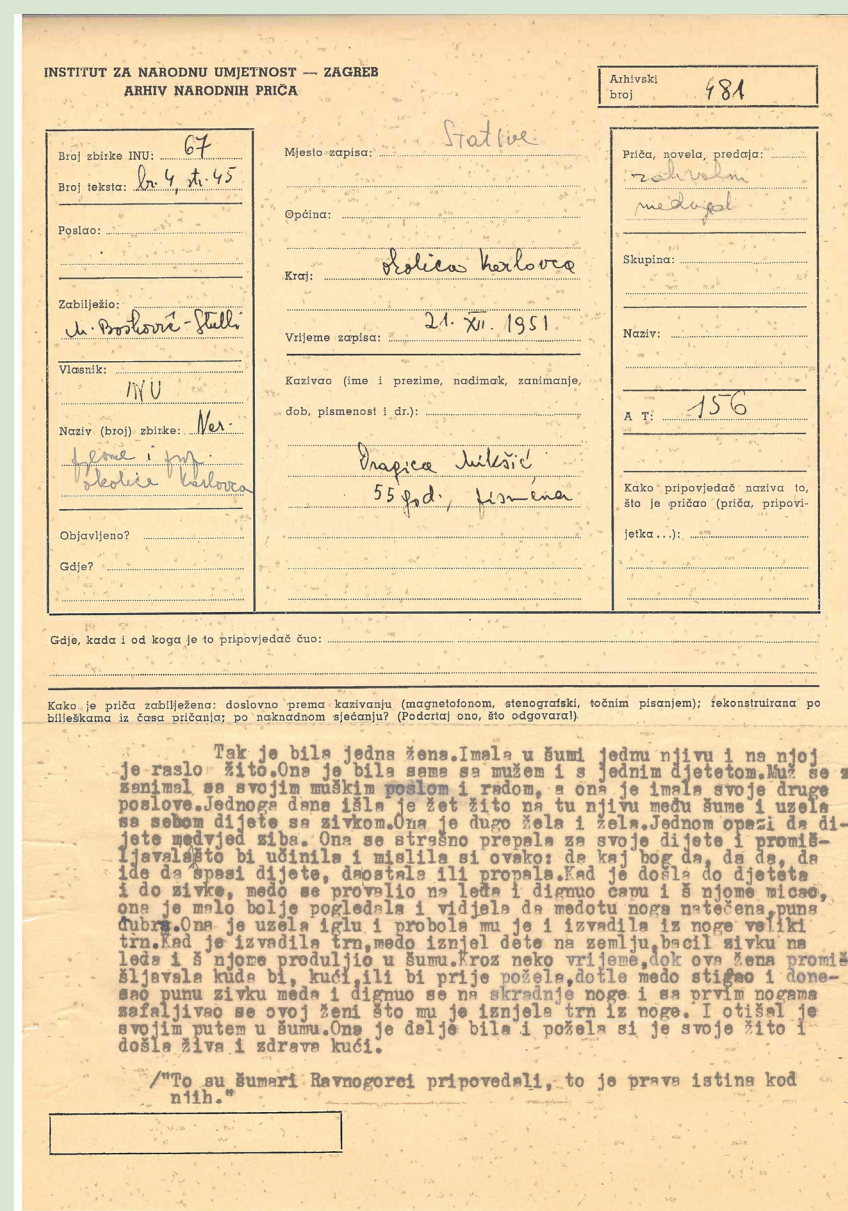 INSTITUT ZA NARODNU UMJETNOST — ZAGREB
ARHIV NARODNIH PRIČA
Arhivski
broj 481
Broj zbirke INU: 67
Broj teksta: br. 4, str. 45
Poslao:
Zabilježio:
M. Bošković-Stulli
Vlasnik:
INU
Naziv (broj) zbirke: Nar.
pjesme i prip.
okolice Karlovca
Objavljeno?
Gdje?
Mjesto zapisa: Stative
Općina:
Kraj: okolica Karlovca
Vrijeme zapisa: 21. XII. 1951.
Kazivao (ime i prezime, nadimak, zanimanje,
dob, pismenost i dr.):
Dragica Mikšić,
55 god., pismena
Priča, novela, predaja:
zahvalni
medvjed
Skupina:
Naziv:
A T: 156
Kako pripovjedač naziva to,
što je pričao (priča, pripovi-
jetka...):
Gdje, kada i od koga je to pripovjedač čuo:
Kako je priča zabilježena: doslovno prema kazivanju (magnetofonom, stenografski, točnim pisanjem); rekonstruirana po
bilješkama iz časa pričanja; po naknadnom sjećanju? (Podcrtaj ono, što odgovara!)
Tak je bila jedna žena.Imala u šumi jednu njivu i na njoj
je raslo žito.Ona je bila sama sa mužem i s jednim djetetom.Muž se z
zanimal sa svojim muškim poslom i radom, a ona je imala svoje druge
poslove.Jednoga dana išla je žet žito na tu njivu među šume i uzela
sa sobom dijete sa zivkom.Ona je dugo žela i žela.Jednom opazi da di-
jete medvjed ziba. Ona se strašno prepala za svoje dijete i promiš-
ljavala što bi učinila i mislila si ovako: da kaj bog da, da da, da
ide da spasi dijete, daostala ili propala.Kad je došla do djeteta
i do zivke, medo se provalio na leđa i dignuo capu i š njome micao,
ona je malo bolje pogledala i vidjela da medotu noga natečena,puna
đubra.Ona je uzela iglu i probola mu je i izvadila iz noge veliki
trn.Kad je izvadila trn,medo iznjel dete na zemlju,bacil zivku na
leđa i š njome produljio u šumu.Kroz neko vrijeme,dok ova žena promiš
šljavala kuda bi, kući,ili bi prije požela,dotle medo stigao i done-
sao punu zivku meda i dignuo se na skradnje noge i sa prvim nogama
zafaljivao se ovoj ženi što mu je iznjela trn iz noge. I otišal je
svojim putem u šumu.Ona je dalje bila i požela si je svoje žito i
došla živa i zdrava kući.
/"To su šumari Ravnogorci pripovedali, to je prava istina kod
njih."